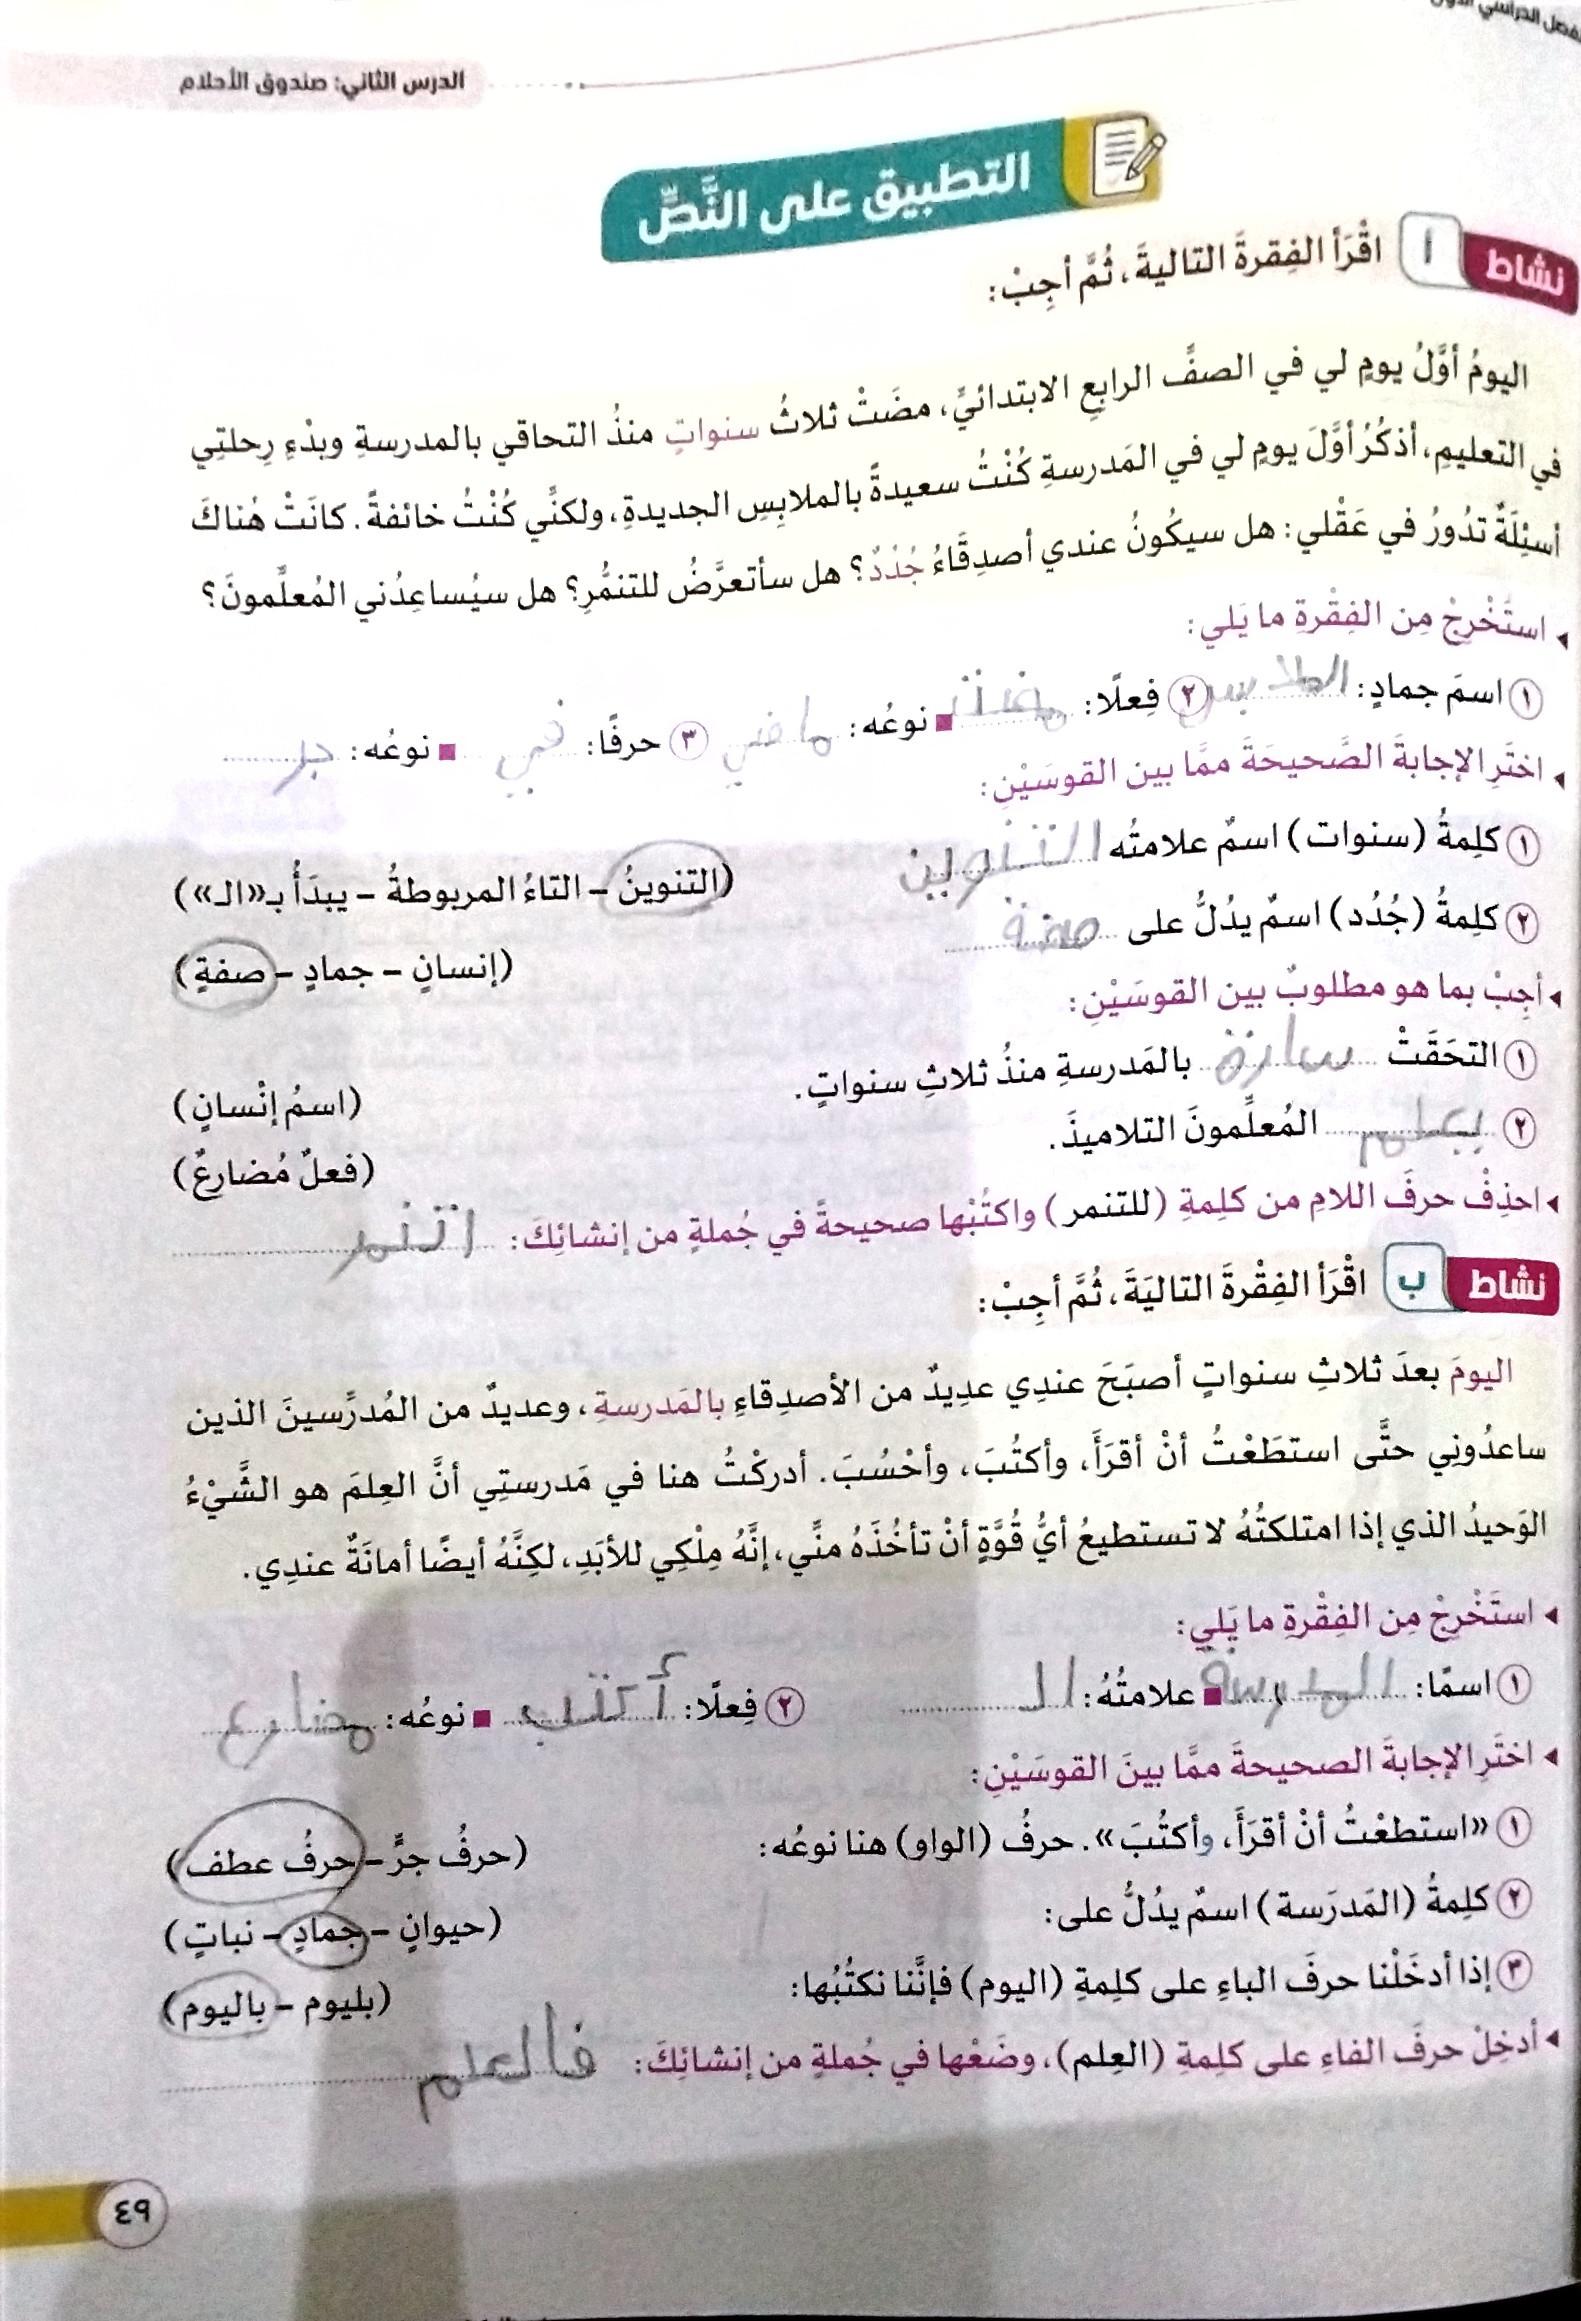 الدرس الثاني: صندوق الأحلام
التطبيق على النَّصِّ
نشاط ا اقْرَأ الفِقرةَ التاليةَ، ثُمَّ أجِبْ:
اليومُ أوَّلُ يومٍ لي في الصفِّ الرابعِ الابتدائيِّ، مضَتْ ثلاثُ سنواتٍ منذُ التحاقي بالمدرسةِ وبدْءِ رِحلتِي
في التعليمِ، أذكُرُ أوَّلَ يومٍ لي في المَدرسةِ كُنْتُ سعيدةً بالملابِسِ الجديدةِ، ولكنِّي كُنْتُ خائفةً. كانَتْ هُناكَ
أسئِلَةٌ تدُورُ في عَقْلي: هل سيكُونُ عندي أصدِقَاءُ جُدُدٌ؟ هل سأتعرَّضُ للتنمُّرِ؟ هل سيُساعِدُني المُعلِّمونَ؟
استَخْرِجْ مِن الفِقْرةِ ما يَلي:
١ اسمَ جمادٍ: الملابس ٢ فِعلًا: مضت نوعُه: ماضي ٣ حرفًا: في نوعُه: جر
اختَرِ الإجابةَ الصَّحيحَةَ ممَّا بين القوسَيْنِ:
١ كلِمةُ (سنوات) اسمٌ علامتُه التنوين (التنوينُ - التاءُ المربوطةُ - يبدَأُ بـ«الـ»)
٢ كلِمةُ (جُدُد) اسمٌ يدُلُّ على صفة (إنسانٍ - جمادٍ - صفةٍ)
أجِبْ بما هو مطلوبٌ بين القوسَيْنِ:
١ التحَقَتْ سارة بالمَدرسةِ منذُ ثلاثِ سنواتٍ. (اسمُ إنْسانٍ)
٢ يعلم المُعلِّمونَ التلاميذَ. (فعلٌ مُضارعٌ)
احذِفْ حرفَ اللامِ من كلِمةِ (للتنمر) واكتُبْها صحيحةً في جُملةٍ من إنشائِكَ: اتنمر
نشاط ب اقْرَأ الفِقْرةَ التاليَةَ، ثُمَّ أجِبْ:
اليومَ بعدَ ثلاثِ سنواتٍ أصبَحَ عندِي عدِيدٌ من الأصدِقاءِ بالمَدرسةِ، وعديدٌ من المُدرِّسينَ الذين
ساعدُونِي حتَّى استطَعْتُ أنْ أقرَأَ، وأكتُبَ، وأحْسُبَ. أدركْتُ هنا في مَدرستِي أنَّ العِلمَ هو الشَّيْءُ
الوَحيدُ الذي إذا امتلكتُهُ لا تستطيعُ أيُّ قُوَّةٍ أنْ تأخُذَهُ منِّي، إنَّهُ مِلْكِي للأبَدِ، لكِنَّهُ أيضًا أمانَةٌ عندِي.
استَخْرِجْ مِن الفِقْرةِ ما يَلي:
١ اسمًا: المدرسة علامتُهُ: ال ٢ فِعلًا: أكتب نوعُه: مضارع
اختَرِ الإجابةَ الصحيحةَ ممَّا بينَ القوسَيْنِ:
١ «استطعْتُ أنْ أقرَأَ، وأكتُبَ». حرفُ (الواو) هنا نوعُه: (حرفُ جرٍّ - حرفُ عطف)
٢ كلِمةُ (المَدرَسة) اسمٌ يدُلُّ على: (حيوانٍ - جمادٍ - نباتٍ)
٣ إذا أدخَلْنا حرفَ الباءِ على كلِمةِ (اليوم) فإنَّنا نكتُبُها: (بليوم - باليوم)
أدخِلْ حرفَ الفاءِ على كلِمةِ (العِلم)، وضَعْها في جُملةٍ من إنشائِكَ: فالعلم
٤٩